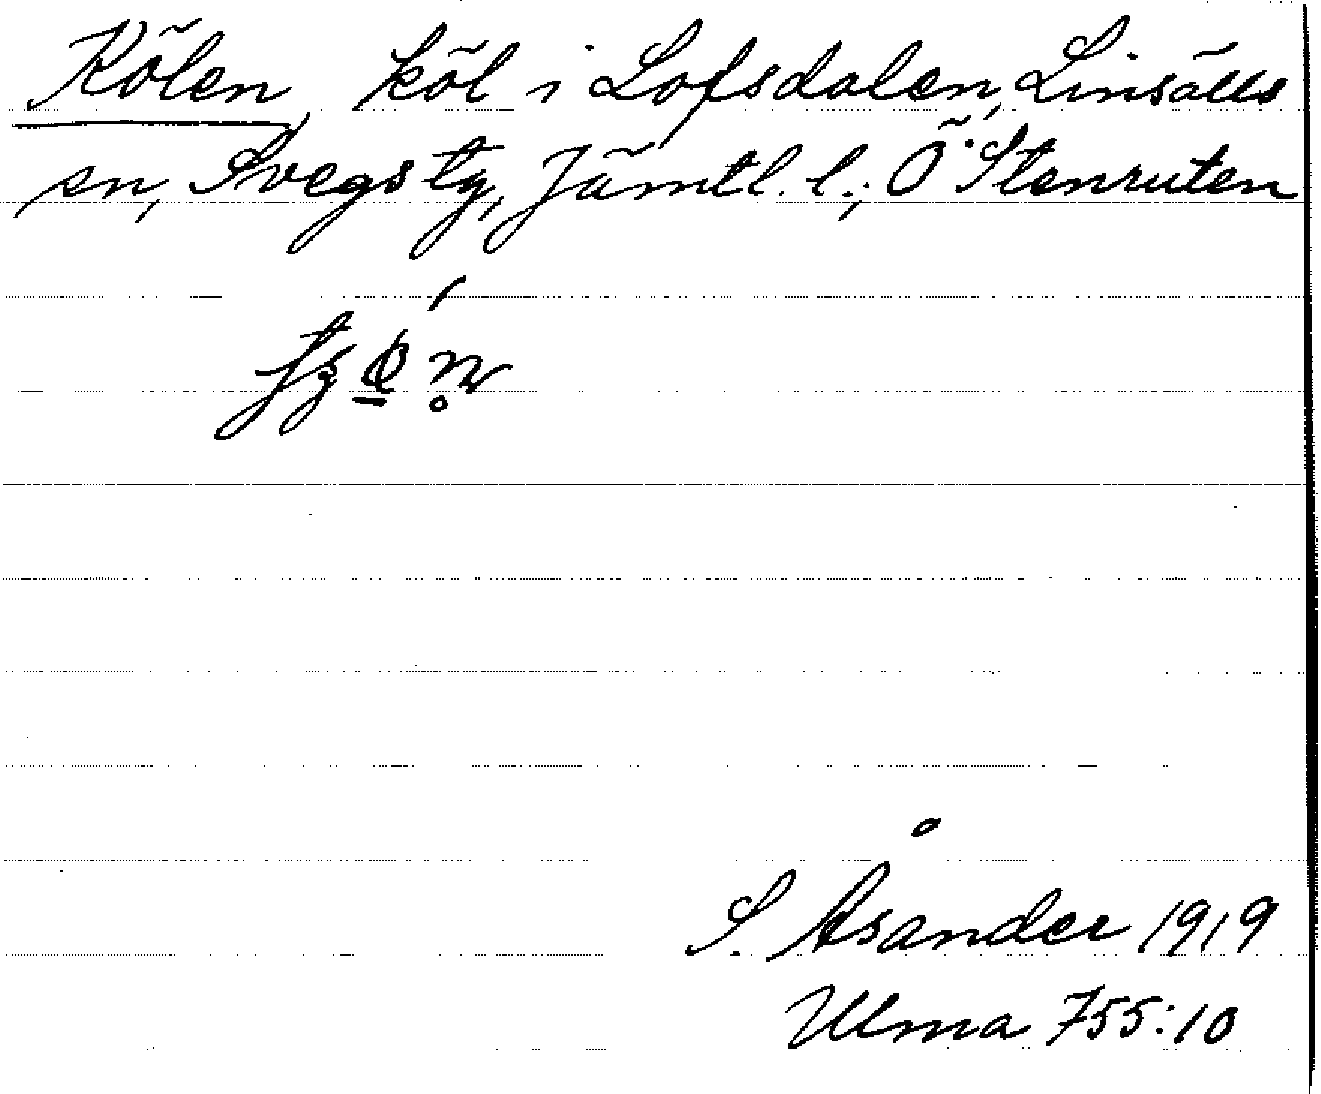 Kölen, köl i Lofsdalen, Linsälls
sn, Svegs tg, Jämtl. l.; Ö Stenruten
S. Åsander 1919
Ulma 755:10